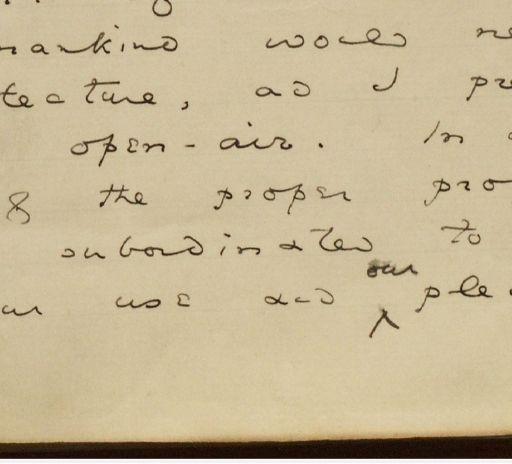 mankind would ne
tecture, as I pre
open-air. In
& the proper pro
subordinated to
our use and our ple